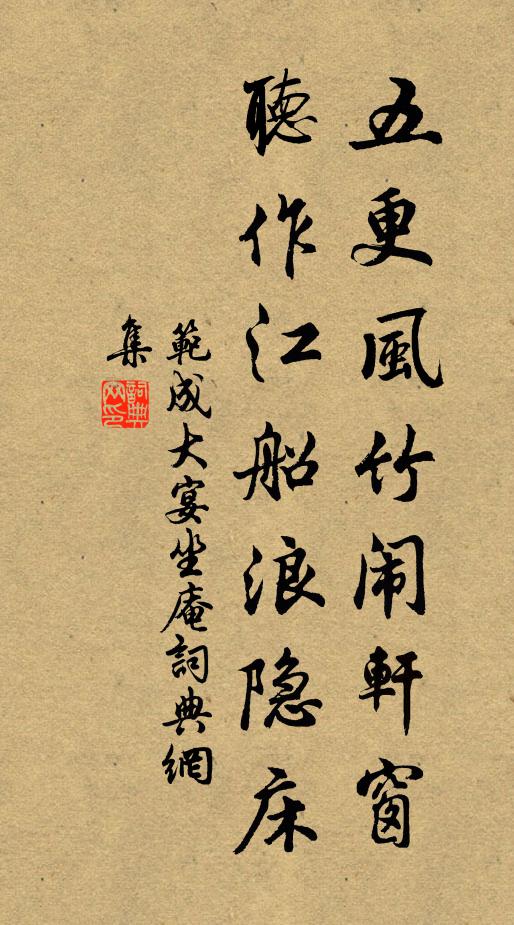 五更風竹闹軒窗
聽作江船浪隐床
範成大宴坐庵詞典網
集
詞典
网印